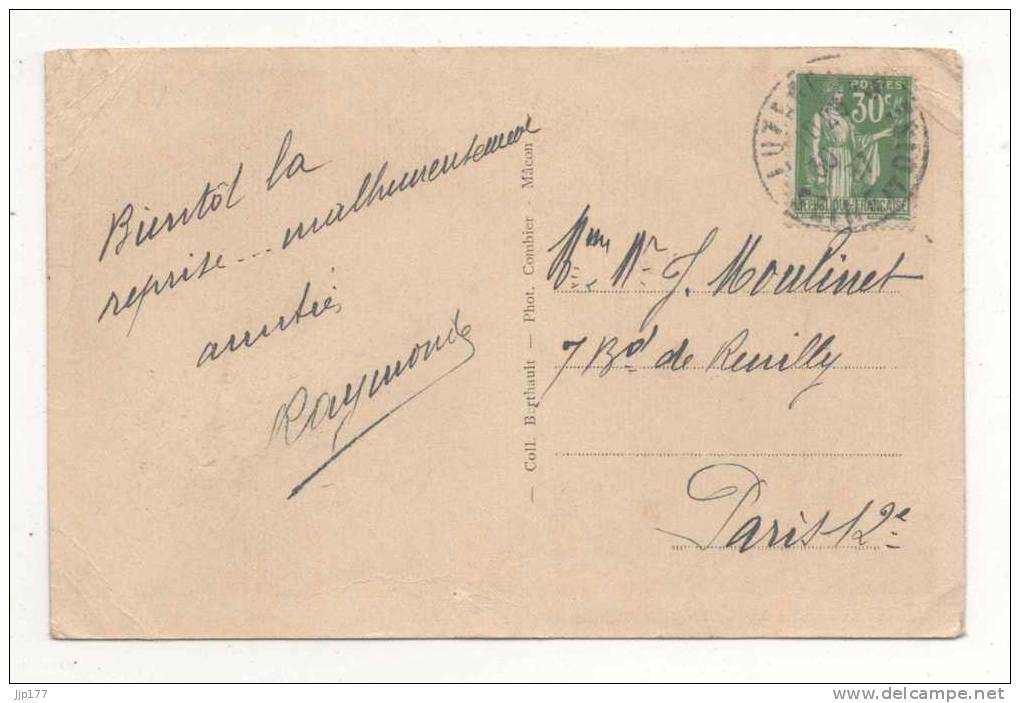 Bientôt la
reprise... malheureusement
amitiés
Raymonde
— Coll. Berthault — Phot. Combier - Mâcon
POSTES
30c
REPUBLIQUE FRANÇAISE
Mme Mr J. Moulinet
7 Bd de Reuilly
Paris 12e
jjp177
www.delcampe.net